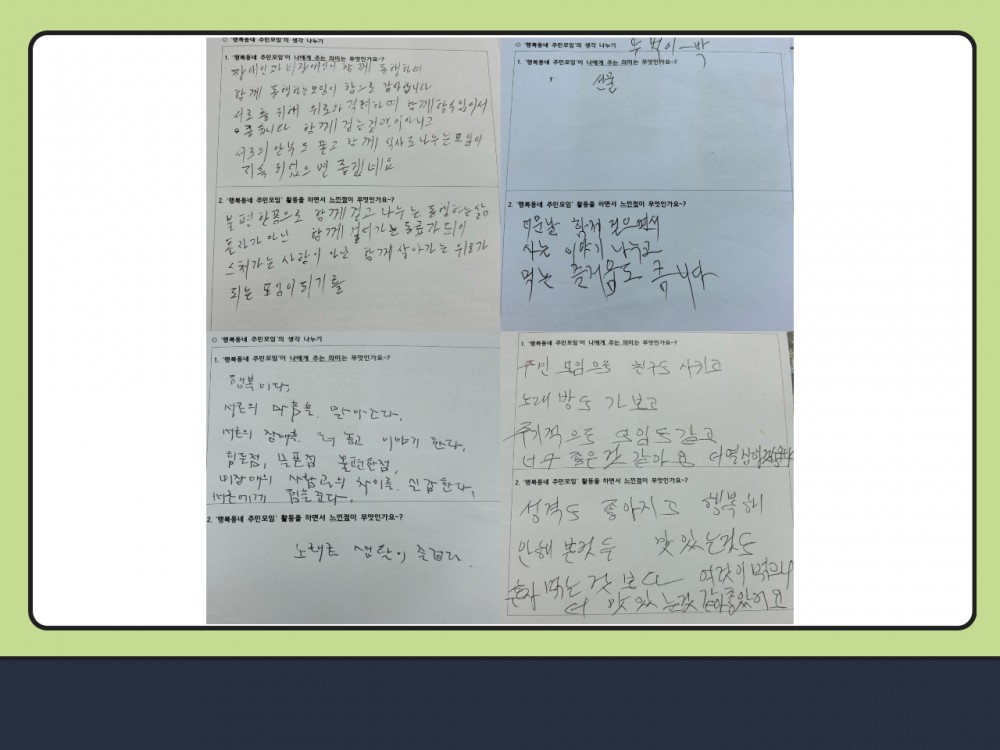 ○ '행복동네 주민모임'의 생각 나누기
1. '행복동네 주민모임'이 나에게 주는 의미는 무엇인가요~?
장애인과 비장애인이 함께 동행하며
함께 동행하는모임이 참으로 감사합니다
서로를 위해 위로와 격려하며 함께할수있어서
좋습니다 함께 걷는것뿐이아니고
서로의 안부도 묻고 함께 식사도 나누는모임이
지속 되었으면 좋겠네요
2. '행복동네 주민모임' 활동을 하면서 느낀점이 무엇인가요~?
불편한몸으로 함께 걷고 나누는 동행하는삶
홀라가 아닌 함께 걸어가는 동료가 되어
스쳐가는 사람이 아닌 함께 살아가는 위로가
되는 모임이되기를
○ '행복동네 주민모임'의 생각 나누기
1. '행복동네 주민모임'이 나에게 주는 의미는 무엇인가요~?
선물
2. '행복동네 주민모임' 활동을 하면서 느낀점이 무엇인가요~?
더운날 함께 걸으면서
사는 이야기 나누고
먹는 즐거움도 큽니다
○ '행복동네 주민모임'의 생각 나누기
1. '행복동네 주민모임'이 나에게 주는 의미는 무엇인가요~?
행복이다.
서로의 마음을 알아준다.
서로의 장애를 터 놓고 이야기 한다.
힘든점, 불편한점,
비장애의 사람과의 차이를 실감한다.
서로에게 힘을준다.
2. '행복동네 주민모임' 활동을 하면서 느낀점이 무엇인가요~?
노래로 생활이 즐겁다.
1. '행복동네 주민모임'이 나에게 주는 의미는 무엇인가요~?
주민 모임으로 친구도 사키고
노래방도 가보고
주기적으로 모임도 갖고
너무 좋은것 같아요 더열심히
2. '행복동네 주민모임' 활동을 하면서 느낀점이 무엇인가요~?
성격도 좋아지고 행복해
안해 본것두 맛있는것도
혼자 먹는 것 보다 여럿이 먹으니
더 맛있는것 같아좋았어요